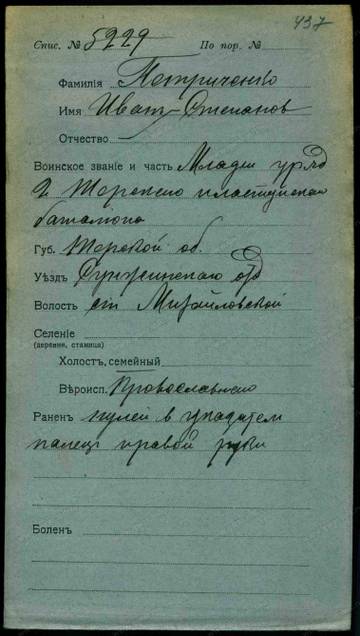 437
Спис. № 5229 По пор. №
Фамилія Петриченко
Имя Иван Степанов
Отчество
Воинское званіе и часть Младш уряд
2 Терского пластунского
баталиона
Губ. Терской об.
Уѣздъ Сунженского отд
Волость ст Михайловской
Селеніе
(деревня, станица)
Холостъ, семейный
Вѣроисп. Православного
Раненъ пулей в указател
палец правой руки
Боленъ